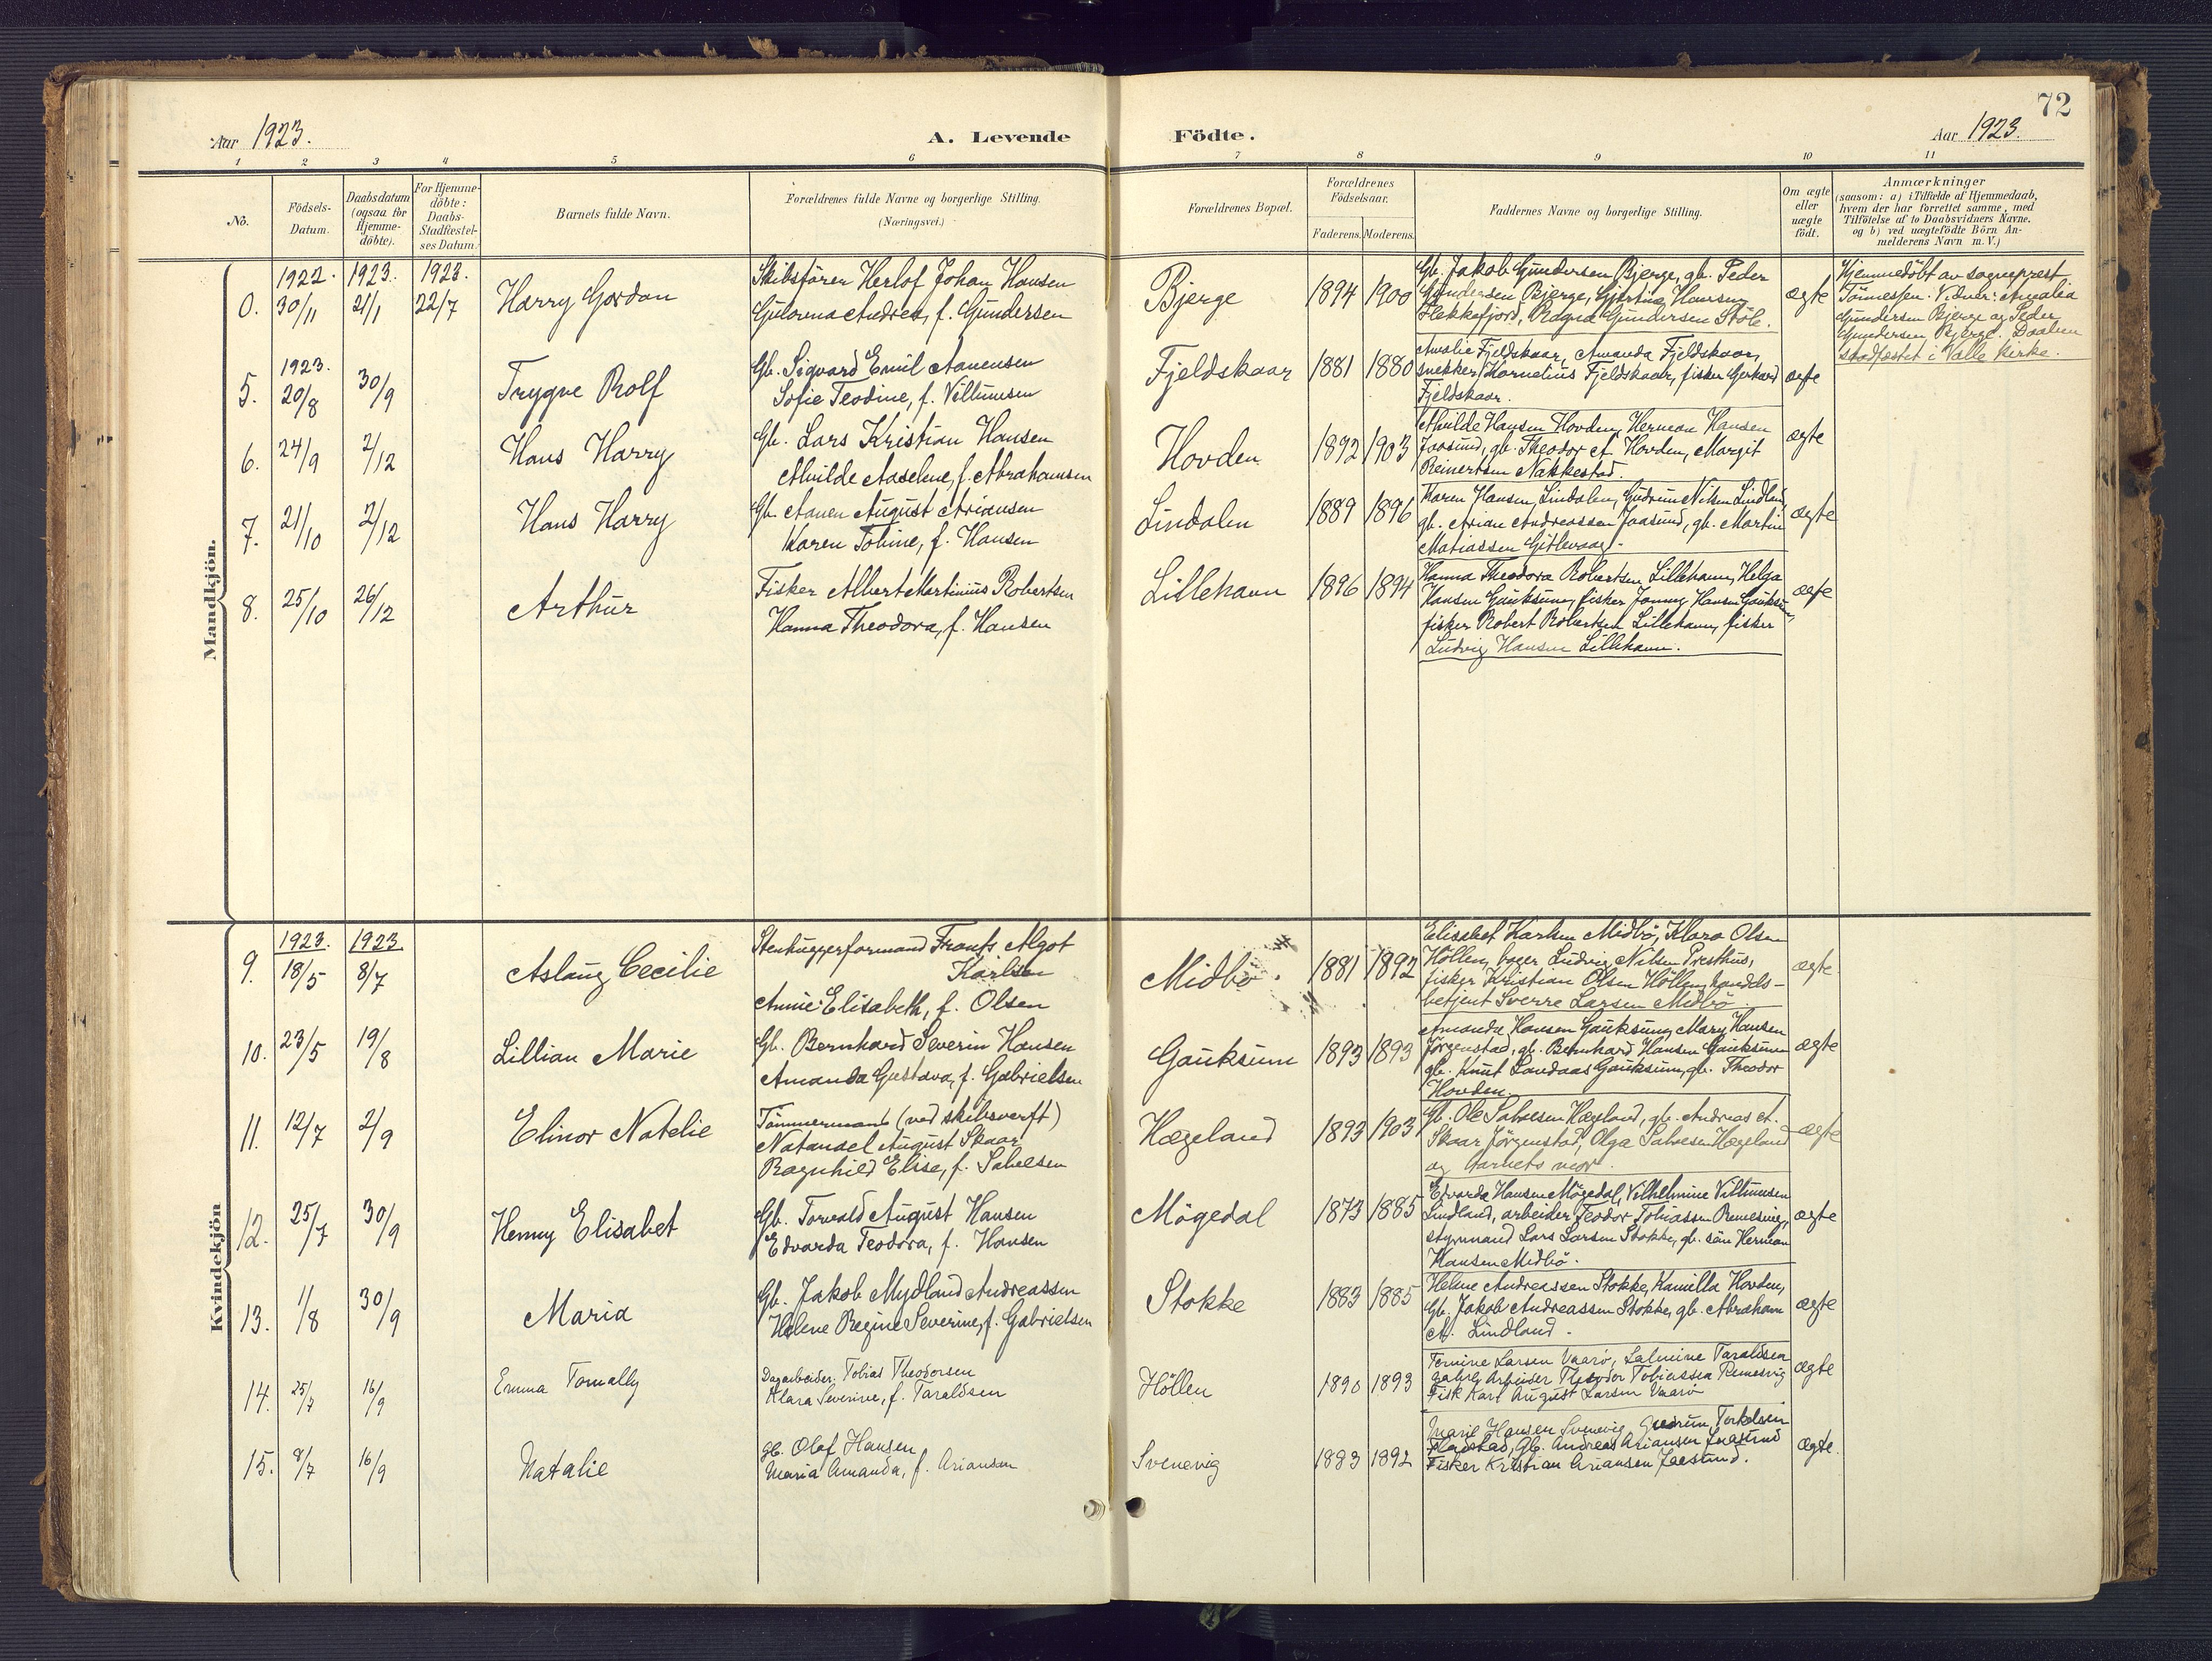 72
Aar 1923.
A. Levende
Födte.
Aar 1923.
1 2 3 4 5 6 7 8 9 10 11
No.
Födsels-
Datum.
Daabsdatum
(ogsaa for
Hjemme-
döbte).
For Hjemme-
döbte:
Daabs-
Stadfæstel-
ses Datum.
Barnets fulde Navn.
Forældrenes fulde Navne og borgerlige Stilling.
(Næringsvei.)
Forældrenes Bopæl.
Forældrenes
Födselsaar.
Faderens. Moderens.
Faddernes Navne og borgerlige Stilling.
Om ægte
eller
uægte
födt.
Anmærkninger
(saasom: a) i Tilfælde af Hjemmedaab,
hvem der har forrettet samme, med
Tilföielse af to Daabsvidners Navne.
og b) ved uægtefödte Börn An-
melderens Navn m. V.)
Mandkjön.
1922. 1923. 1923.
0. 30/11 21/1 22/7
Harry Gordon
Skibsfører Herlof Johan Hansen
Gulovna Andrea, f. Gundersen
Bjerge
1894 1900
Gb. Jakob Gundersen Bjerge, gb. Peder
Gundersen Bjerge, Gjertine Hansen
Flekkefjord, Ragna Gundersen Støle.
ægte
Hjemmedöbt av sogneprest
Tønnessen. Vidner: Amalia
Gundersen Bjerge og Peder
Gundersen Bjerge. Daaben
stadfæstet i Valle kirke.
1923.
5. 20/8 30/9
Trygve Rolf
Gb. Sigvard Emil Aanensen
Sofie Teodine, f. Villumsen
Fjeldskaar
1881 1880
Amalie Fjeldskaar, Amanda Fjeldskaar,
snekker Kornelius Fjeldskaar, fisker Gerhard
Fjeldskaar.
ægte
6. 24/9 2/12
Hans Harry
Gb. Lars Kristian Hansen
Alvilde Aaselene, f. Abrahamsen
Hovden
1892 1903
Alvilde Hansen Hovden, Herman Hansen
Jaasund, gb. Theodor A. Hovden, Margit
Reinertsen Nakkestad.
ægte
7. 21/10 2/12
Hans Harry
Gb. Aanen August Ariansen
Karen Tobine, f. Hansen
Lindalen
1889 1896
Karen Hansen, Lindalen, Gudrun Nilsen Lindland,
gb. Arian Andreassen Jaasund, gb. Martin
Matiassen Gitlevaag.
ægte
8. 25/10 26/12
Arthur
Fisker Albert Martinius Robertsen
Hanna Theodora, f. Hansen
Lillehavn
1896 1894
Hanna Theodora Robertsen Lillehavn, Helga
Hansen Gauksum, fisker Jonny Hansen Gauksum,
fisker Robert Robertsen Lillehavn, fisker
Ludvig Hansen Lillehavn.
ægte
Kvindekjön
1923. 1923
9. 18/5 8/7
Aslaug Cecilie
Stenhuggerformand Frants Algot
Karlsen
Annie Elisabeth, f. Olsen
Midbö.
1881 1892
Elisabet Karlsen Midbö, Klara Olsen
Höllen, bager Ludvig Nilsen Presthus,
fisker Kristian Olsen Höllen, handels-
betjent Sverre Larsen Midbö.
ægte
10. 23/5 19/8
Lillian Marie
Gb. Bernhard Severin Hansen
Amanda Gustava, f. Gabrielsen
Gauksum
1893 1893
Amanda Hansen Gauksum, Mary Hansen
Jørgenstad, gb. Bernhard Hansen Gauksum
gb. Knut Landaas Gauksum, gb. Theodor
Hovden
ægte
11. 12/7 2/9
Elinor Natelie
Tömmermand (ved skibsverft)
Natanael August Skaar
Ragnhild Elise, f. Salvesen
Hægeland
1893 1903
Gb. Ole Salvesen Hægeland, gb. Andreas A.
Skaar Jørgenstad, Olga Salvesen Hægeland
og barnets mor.
ægte
12. 25/7 30/9
Henny Elisabet
Gb. Torvald August Hansen
Edvarda Teodora, f. Hansen
Mögedal
1873 1885
Edvarda Hansen Mögedal, Vilhelmine Villumsen
Lindland, arbeider Teodor Tobiassen Remesvig,
styrmand Lars Larsen Stokke, gb. sön Herman
Hansen Midbö.
ægte
13. 1/8 30/9
Maria
Gb. Jakob Mydland Andreassen
Helene Regine Severine, f. Gabrielsen
Stokke
1883 1885
Helene Andreassen Stokke, Kamilla Hovden,
Gb. Jakob Andreassen Stokke, gb. Abraham
A. Lindland.
ægte
14. 25/7 16/9
Emma Tomally
Dagarbeider Tobias Theodorsen
Klara Severine, f. Taraldsen
Höllen
1890 1893
Larsen Vaarö, Salmine Taraldsen
Arbeider Theodor Tobiassen Remesvig
Fisk Karl August Larsen Vaarö
ægte
15. 9/7 16/9
Natalie
gb. Olaf Hansen
Maria Amanda, f. Ariansen
Svenevig
1883 1892
Marie Hansen Svenevig, Gudrun Torkelsen
Gb. Andreas Ariansen Jaasund
Fisker Kristian Ariansen Jaasund.
ægte.